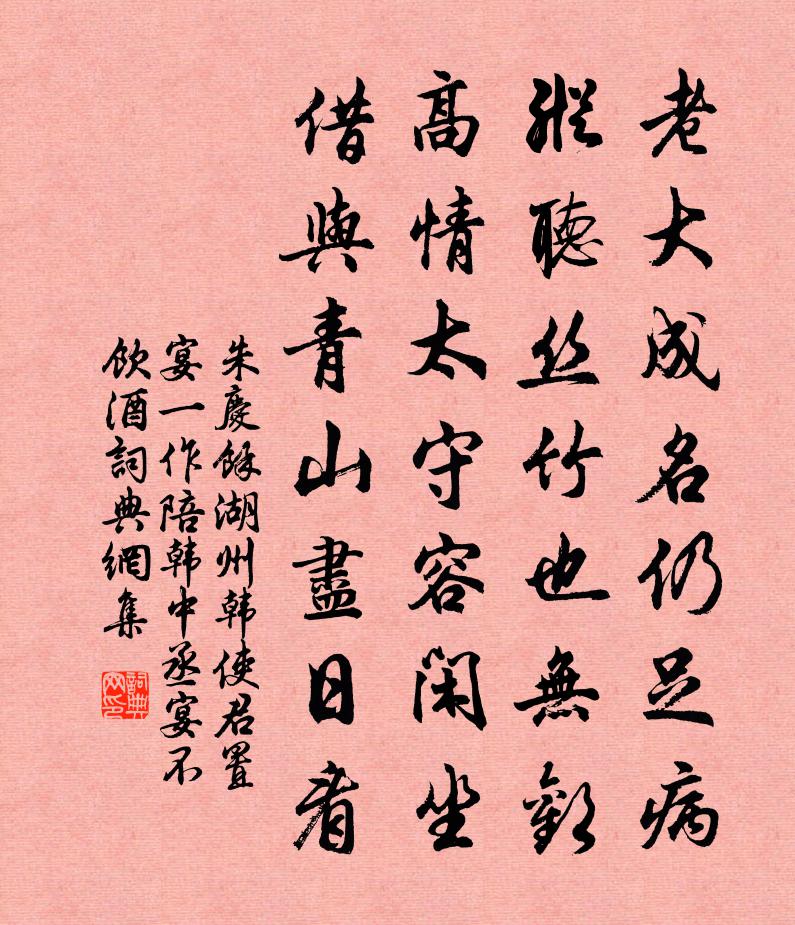 老大成名仍足病
縱聽丝竹也無歡
高情太守容閑坐
借與青山盡日看
朱慶餘湖州韩使君置
宴一作陪韩中丞宴不
飲酒詞典網集
詞典
网印